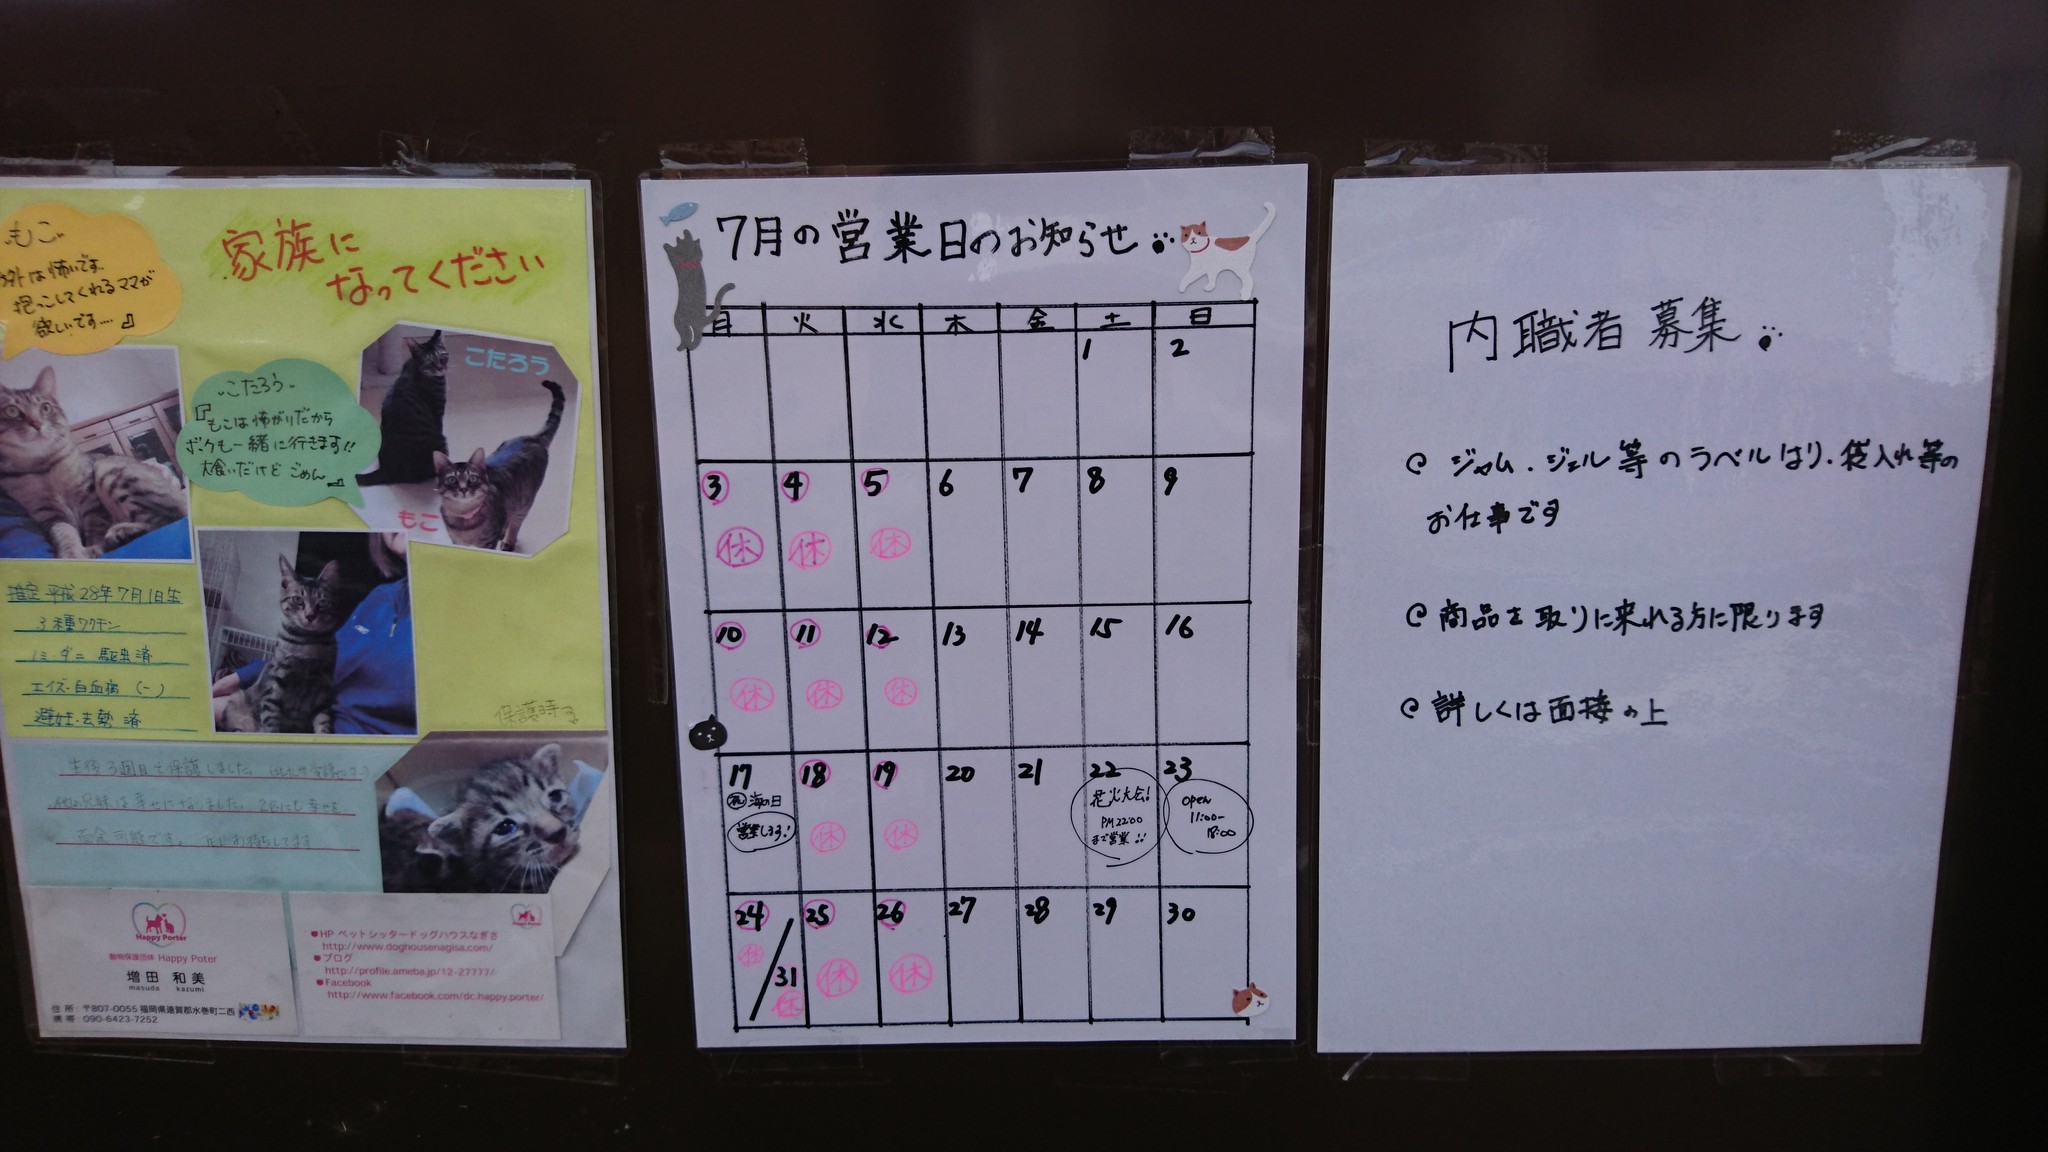 もこ
お外は怖いです。
抱っこしてくれるママが
欲しいです…』
家族に
なってください
こたろう
『もこは怖がりだから
ボクも一緒に行きます!!
大食いだけどごめん』
こたろう
もこ
推定平成28年7月1日生
3種ワクチン
ノミ・ダニ 駆虫済
エイズ・白血病(-)
避妊・去勢 済
保護時
生後3週目で保護しました。
他の兄妹は幸せになりました。2匹にも幸せを
面会可能です。
Happy Porter
動物保護団体 Happy Poter
増田 和美
masuda kazumi
住 所:〒807-0055 福岡県遠賀郡水巻町二西
携 帯:090-6423-7252
Happy Porter
●HP ペットシッタードッグハウスなぎさ
http://www.doghousenagisa.com/
●ブログ
http://profile.ameba.jp/12-27777/
●Facebook
http://www.facebook.com/dc.happy.porter/
7月の営業日のお知らせ
月 火 水 木 金 土 日
1 2
3 4 5 6 7 8 9
休 休 休
10 11 12 13 14 15 16
休 休 休
17 18 19 20 21 22 23
祝 海の日
営業します!
休 休
花火大会!
PM22:00
まで営業!!
open
11:00~
18:00
24 25 26 27 28 29 30
休
31
休 休 休
内職者募集
ジャム・ジェル等のラベルはり・袋入れ等の
お仕事です
商品を取りに来れる方に限ります
詳しくは面接の上